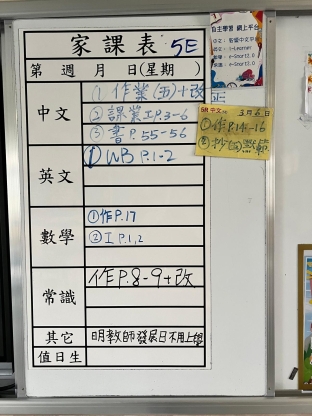 家課表 5E
第 週 月 日(星期 )
中文
① 作業(五)+改
② 課業工P.3-6
③ 書P.55-56
英文
① WB P.1-2
數學
① 作P.17
② 工P.1,2
常識
作P.8-9+改
其它
明教師發展日不用上學
值日生
自主學習 網上平台
i-Learner
eSmart2.0
eSmart2.0
正
5R 中文 3月6日
① 作P.14-16